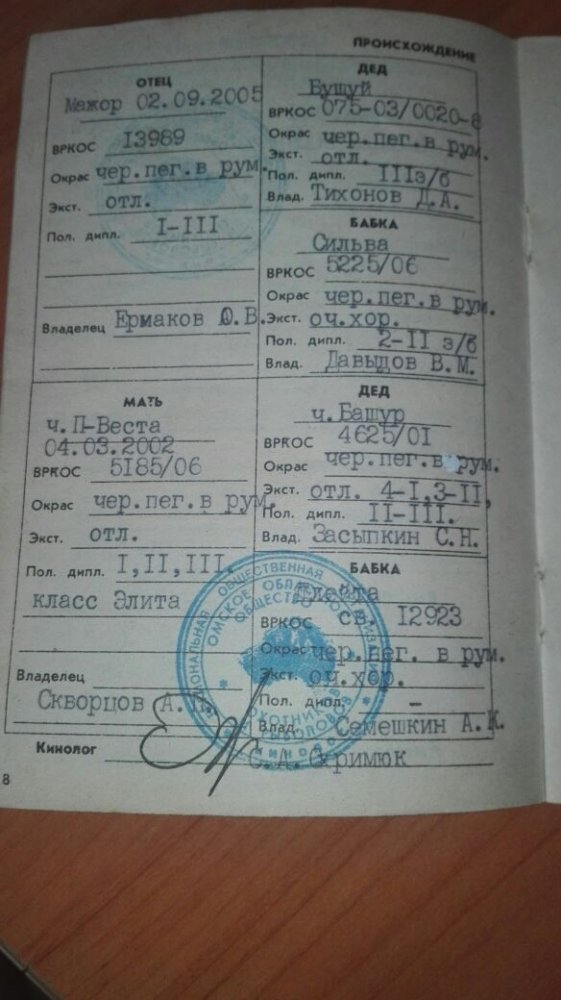 ПРОИСХОЖДЕНИЕ
ОТЕЦ
Мажор 02.09.2005
ВРКОС 13989
Окрас чер.пег.в рум.
Экст. отл.
Пол. дипл. I-III
Владелец Ермаков О.В.
ДЕД
Бушуй
ВРКОС 075-03/0020-8
Окрас чер.пег.в рум.
Экст. отл.
Пол. дипл. IIIз/б
Влад. Тихонов Д.А.
БАБКА
Сильва
ВРКОС 5225/06
Окрас чер.пег.в рум.
Экст. оч.хор.
Пол. дипл. 2-II з/б
Влад. Давыдов В.М.
МАТЬ
ч.П-Веста
04.03.2002
ВРКОС 5185/06
Окрас чер.пег.в рум.
Экст. отл.
Пол. дипл. I,II,III.
класс Элита
Владелец
Скворцов А.П.
ДЕД
ч.Башур
ВРКОС 4625/01
Окрас чер.пег.в рум.
Экст. отл. 4-I,3-II,
Пол. дипл. II-III.
Влад. Засыпкин С.Н.
БАБКА
Флейта
ВРКОС св. 12923
Окрас чер.пег. в рум.
Экст. оч.хор.
Пол. дипл. –
Влад. Семешкин А.К.
Кинолог С.А. Гримюк
ОБЩЕСТВЕННАЯ
ОМСКОЕ
ОБЩЕСТВО
8